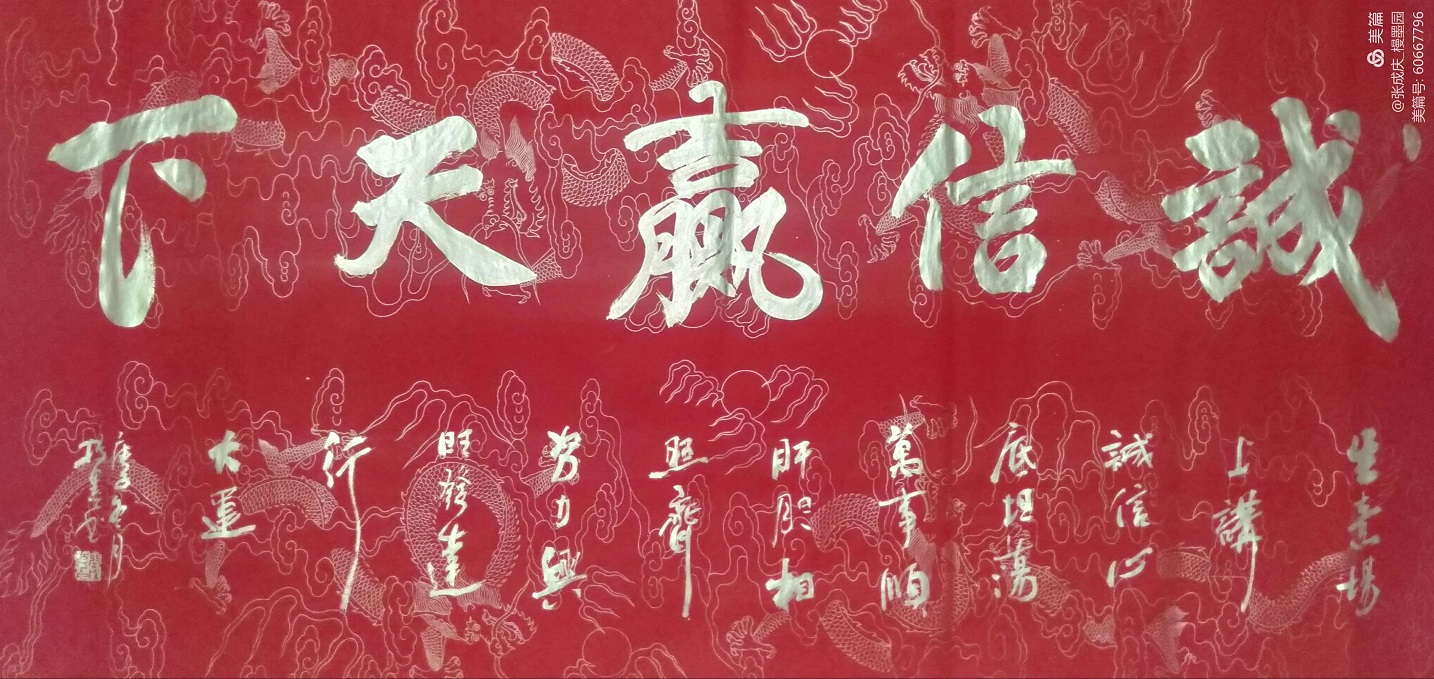 誠信贏天下
生意場
上講
誠信心
底坦蕩
萬事順
肝胆相
照齊
努力興
旺發達
行
大運
美篇
@张成庆_檀墨园
美篇号: 60667796